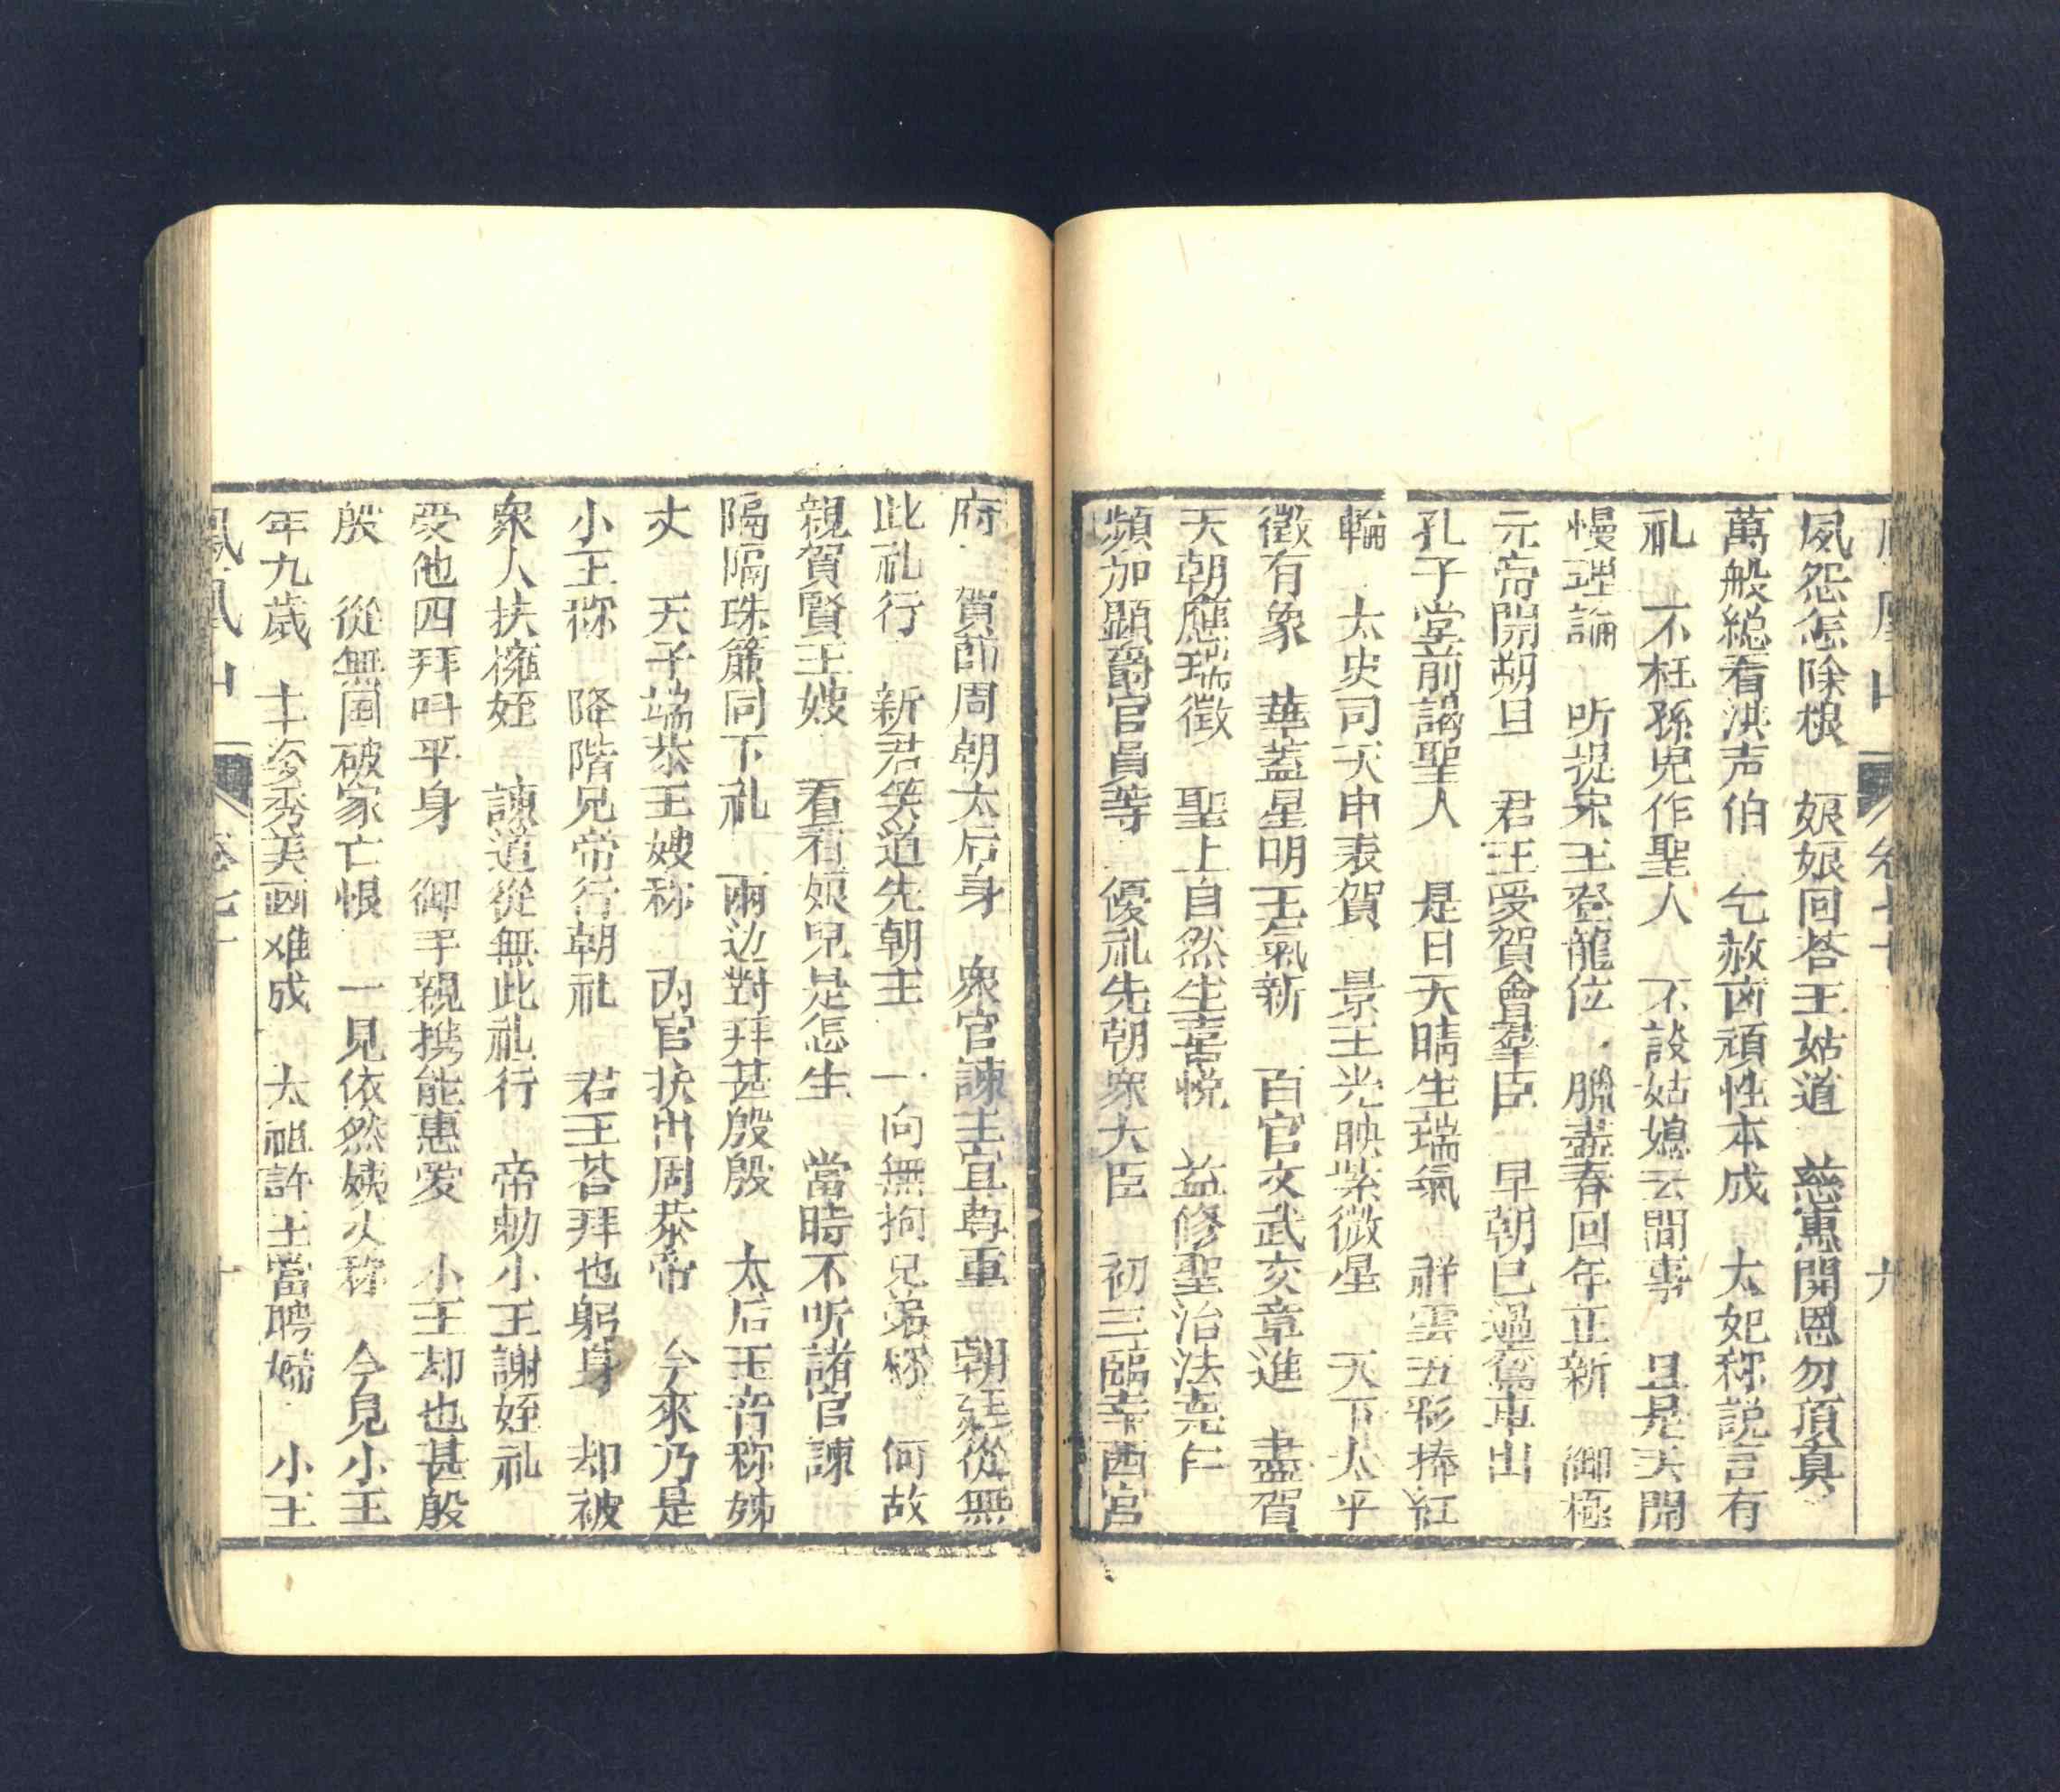 鳳凰山 卷七十 九
夙怨怎除根 娘娘回荅王姑道 慈悳開恩勿項真
萬般総看洪声伯 乞赦凾頑性本成 太妃称説言有
礼 不枉孫児作聖人 不談姑媳云間事 且是天開
慢理論 听提宋王登龍位 臘盡春回年正新 御極
元帝開朔旦 君王受賀會羣臣 早朝已過鸞車出
孔子堂前謁聖人 是日天晴生瑞氣 祥雲五彩捧紅
輪 太史司天申表賀 景王光映紫微星 天下太平
徵有象 華蓋星明王氣新 百官文武交章進 盡賀
天朝應瑞徵 聖上自然生喜悦 益修聖治法堯仁
頻加顯爵官員等 優礼先朝衆大臣 初三臨幸西宮
府 賀節周朝太后身 衆官諫主宜尊重 朝廷從無
此礼行 新君笑道先朝主 一向無拘兄弟称 何故
親賀賢王嫂 看看娘児是怎生 當時不听諸官諫
隔隔珠簾同下礼 兩边對拜甚殷殷 太后玉音称姊
丈 天子端恭王嫂称 内官扶出周恭帝 今來乃是
小王称 降階兄帝行朝礼 君王荅拜也躬身 却被
衆人扶擁姪 諫道從無此礼行 帝勅小王謝姪礼
受他四拜呌平身 御手親携能惠愛 小王却也甚殷
殷 從無国破家亡恨 一見依然姨丈称 今見小王
年九歲 丰姿秀美画难成 太祖許王當聘婦 小王
鳳凰山 卷七十 十